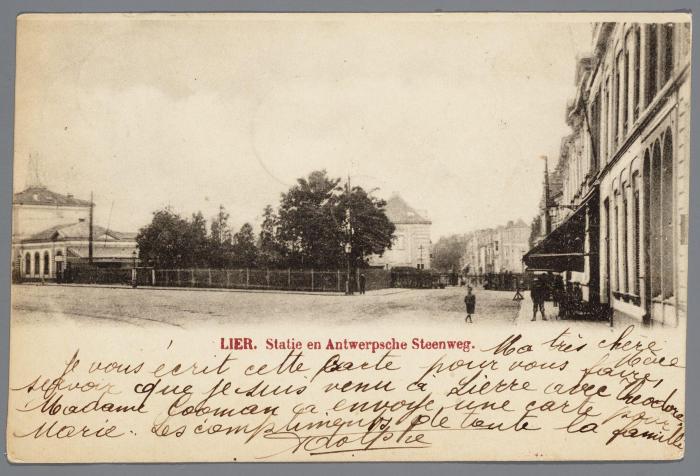 LIER. Statie en Antwerpsche Steenweg.
Ma très chere Mère
Je vous écrit cette carte pour vous faire,
savoir que je suis venu a Lierre avec Théodore
Madame Cooman a envoyé une carte pour
Marie. Les compliments de toute la famille
Adolphe